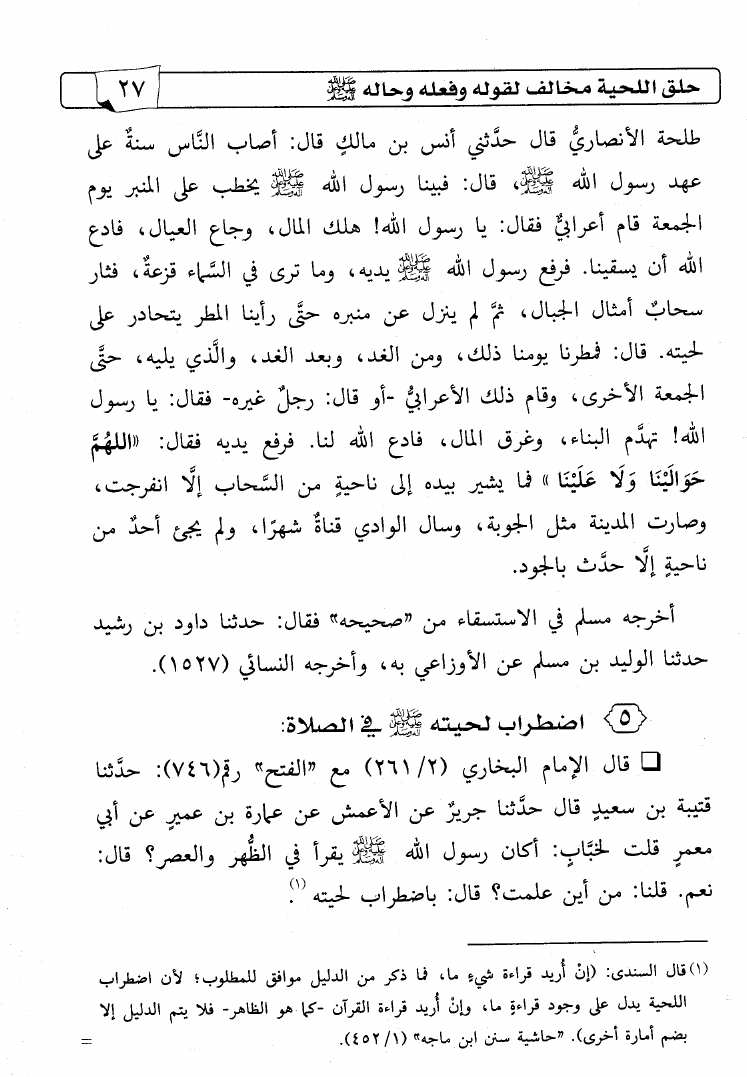 حلق اللحية مخالف لقوله وفعله وحاله ﷺ
٢٧
طلحة الأنصاريُّ قال حدَّثني أنس بن مالكٍ قال: أصاب النَّاس سنةٌ على
عهد رسول الله ﷺ، قال: فبينا رسول الله ﷺ يخطب على المنبر يوم
الجمعة قام أعرابيٌّ فقال: يا رسول الله! هلك المال، وجاع العيال، فادع
الله أن يسقينا. فرفع رسول الله ﷺ يديه، وما ترى في السَّماء قزعةٌ، فثار
سحابٌ أمثال الجبال، ثمَّ لم ينزل عن منبره حتَّى رأينا المطر يتحادر على
لحيته. قال: فمطرنا يومنا ذلك، ومن الغد، وبعد الغد، والَّذي يليه، حتَّى
الجمعة الأخرى، وقام ذلك الأعرابيُّ -أو قال: رجلٌ غيره- فقال: يا رسول
الله! تهدَّم البناء، وغرق المال، فادع الله لنا. فرفع يديه فقال: «اللهُمَّ
حَوَالَيْنَا وَلَا عَلَيْنَا» فما يشير بيده إلى ناحيةٍ من السَّحاب إلَّا انفرجت،
وصارت المدينة مثل الجوبة، وسال الوادي قناةٌ شهرًا، ولم يجئ أحدٌ من
ناحيةٍ إلَّا حدَّث بالجود.
أخرجه مسلم في الاستسقاء من "صحيحه" فقال: حدثنا داود بن رشيد
حدثنا الوليد بن مسلم عن الأوزاعي به، وأخرجه النسائي (١٥٢٧).
٥ اضطراب لحيته ﷺ في الصلاة:
❑ قال الإمام البخاري (٢/ ٢٦١) مع "الفتح" رقم(٧٤٦): حدَّثنا
قتيبة بن سعيدٍ قال حدَّثنا جريرٌ عن الأعمش عن عمارة بن عميرٍ عن أبي
معمرٍ قلت لخبَّابٍ: أكان رسول الله ﷺ يقرأ في الظُّهر والعصر؟ قال:
نعم. قلنا: من أين علمت؟ قال: باضطراب لحيته (١).
(١) قال السندى: (إنْ أُريد قراءة شيءٍ ما، فما ذكر من الدليل موافق للمطلوب؛ لأن اضطراب
اللحية يدل على وجود قراءةٍ ما، وإنْ أُريد قراءة القرآن -كما هو الظاهر- فلا يتم الدليل إلا
بضم أمارة أخرى). "حاشية سنن ابن ماجه" (١/ ٤٥٢).
=